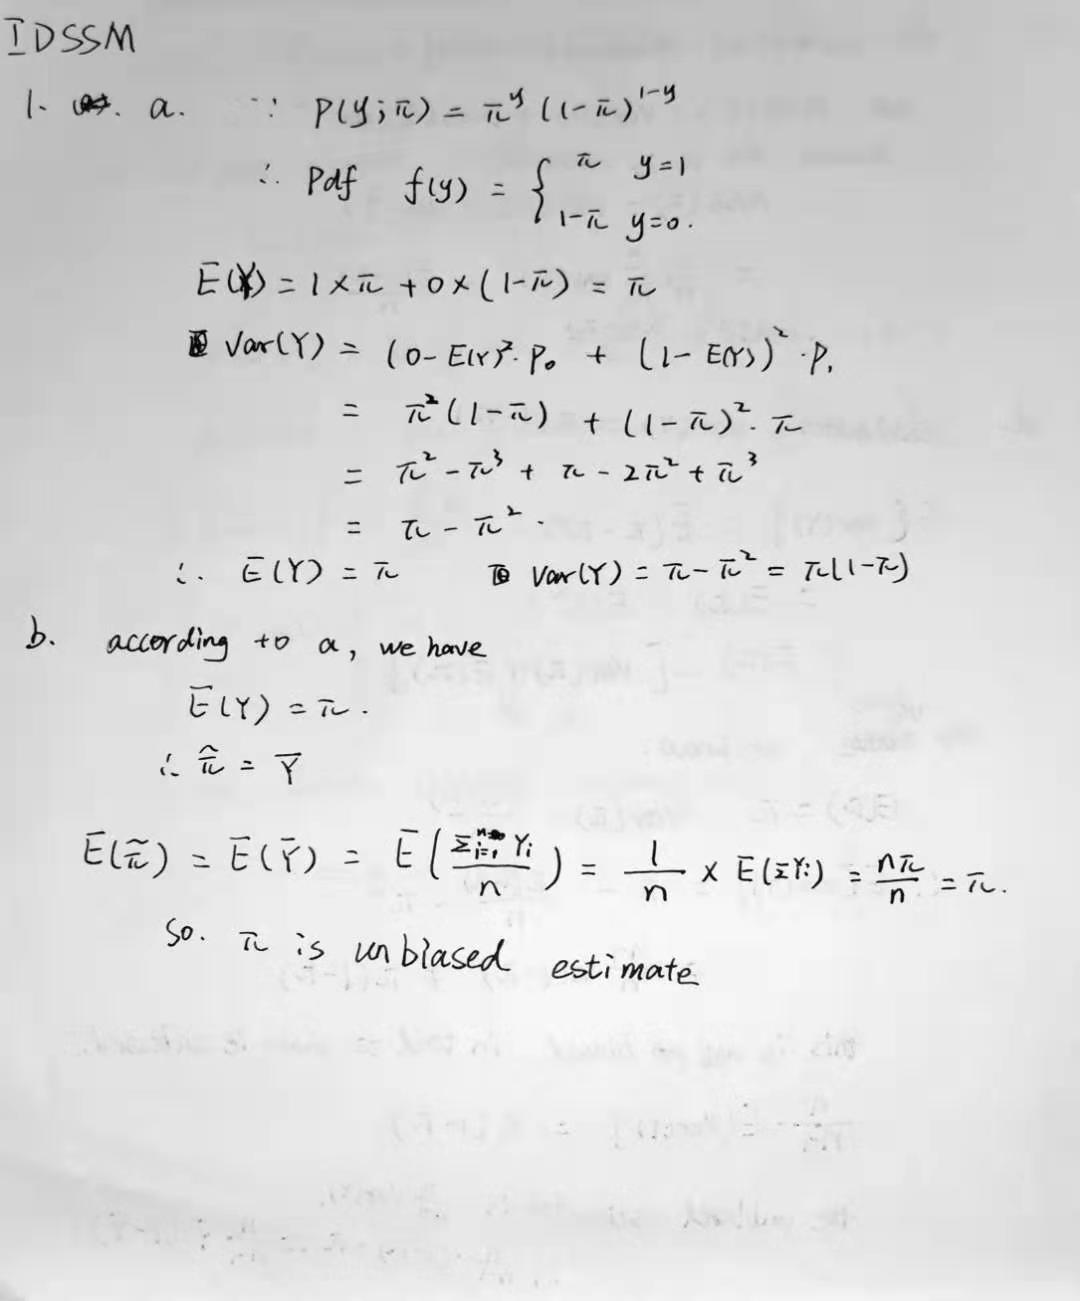 IDSSM
1. a. ∵ P(y;π) = π^y (1-π)^{1-y}
∴ Pdf f(y) = { π y=1
1-π y=0.
E(Y) = 1×π + 0×(1-π) = π
Var(Y) = (0-E(Y)²·P₀ + (1-E(Y))²·P₁
= π²(1-π) + (1-π)²·π
= π²-π³ + π - 2π² + π³
= π - π².
∴ E(Y) = π Var(Y) = π-π² = π(1-π)
b. according to a, we have
E(Y) = π.
∴ π̂ = Ȳ
E(π̃) = E(Ȳ) = E(Σ_{i=1}^{n} Yi / n) = 1/n × E(ΣYi) = nπ/n = π.
So. π is unbiased estimate